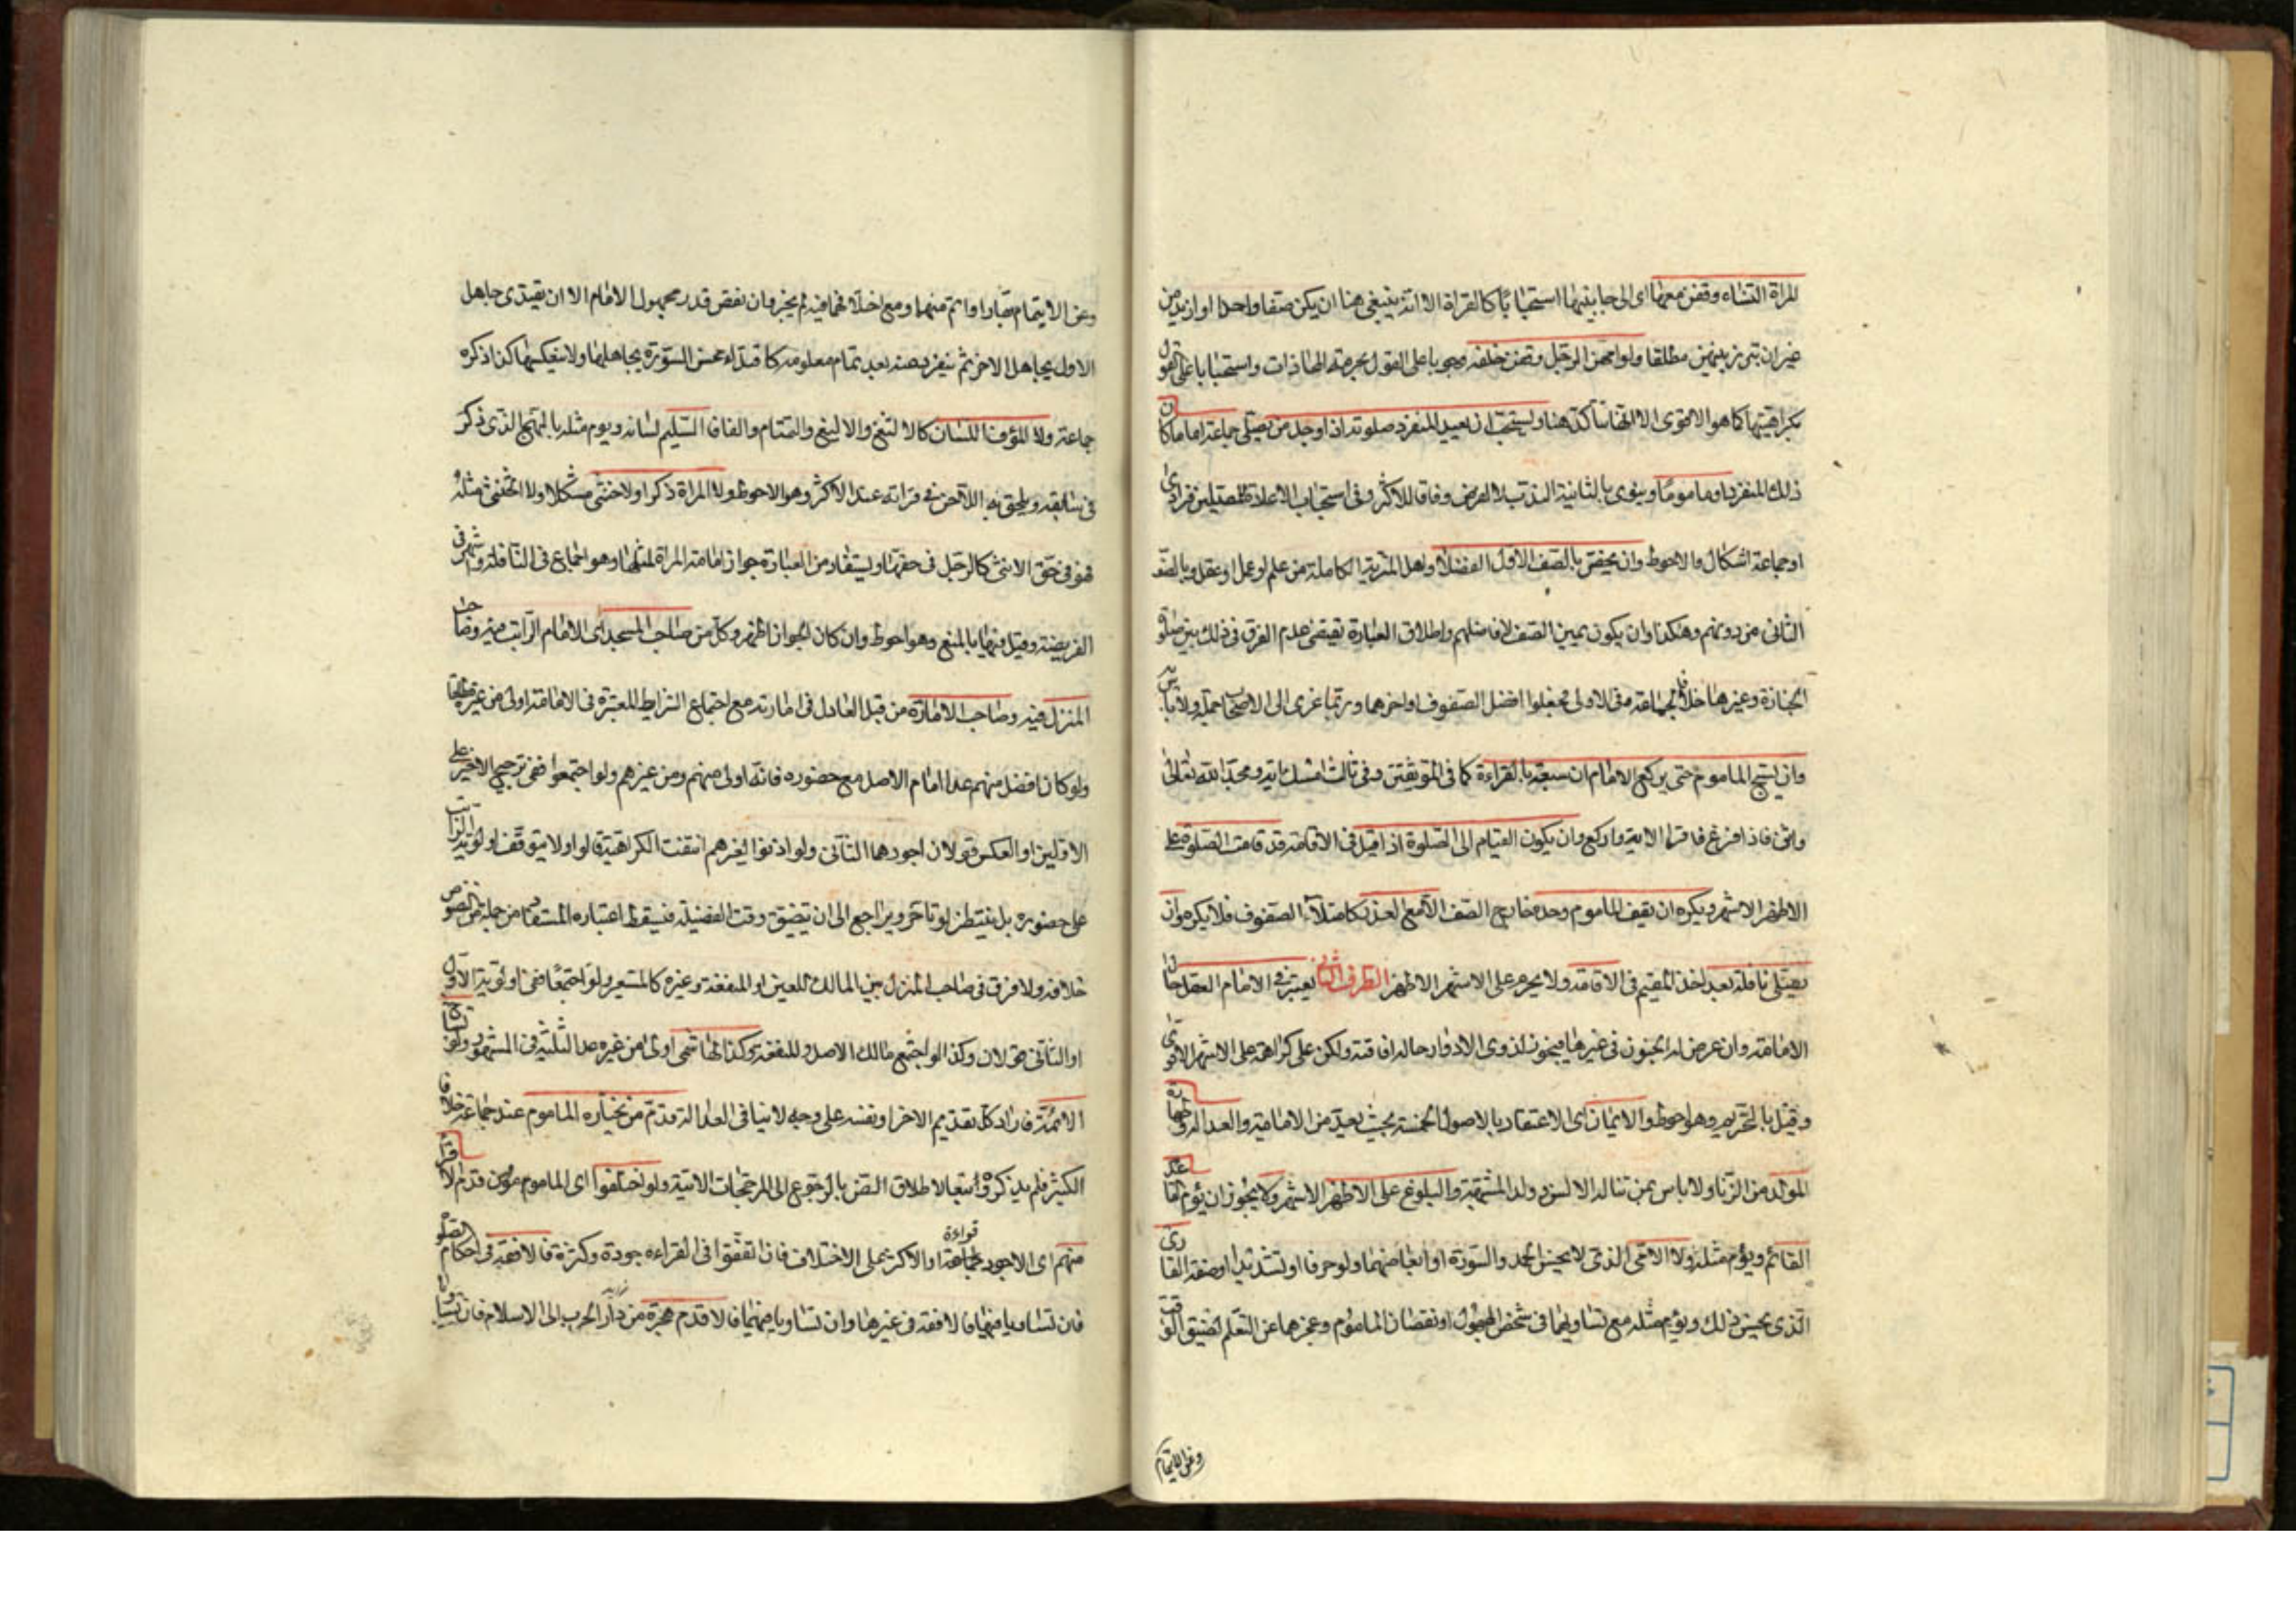 المراة النساء وقفن معها اى الى جانبيها استحبابا كالقراة الا انه ينبغى هنا ان يكن صفا واحدا او ازيد من
غير ان تبرز بينهن مطلقا ولو امهن الرجل وقفن خلفه وجوبا على القول بحرمة المحاذات واستحبابا على القول
بكراهيتها كما هو الاقوى الا انها تتأكد هنا ويستحب ان يعيد المنفرد صلوته اذا وجد من يصلى جماعة اماما كان
ذلك المنفرد او ماموما وينوى بالثانية الندب لا الفرض وفاقا للاكثر وفى استحباب الاعادة للمصلين فرادى
او جماعة اشكال والاحوط وان يخص بالصف الاول الفضلا واهل المزية الكاملة من علم او عمل او عقل وبالصف
الثانى من دونهم وهكذا وان يكون يمين الصف لافاضلهم واطلاق العبارة يقتضى عدم الفرق فى ذلك بين صلوة
الجنازة وغيرها خلافا لجماعة ففى الاولى فجعلوا افضل الصفوف اواخرها وربما عزى الى الاصحاب جملة ولا باس
وان يسبح الماموم حتى يركع الامام ان سبقه بالقراءة كما فى الموثقين وفى ثالث امسك اية ومجد الله تعالى
واثن فاذا فرغ فاقرا الاية واركع وان يكون القيام الى الصلوة اذا قيل فى الاقامة قد قامت الصلوة على
الاظهر الاشهر ويكره ان يقف الماموم وحده خارج الصف الا مع العذر كامتلاء الصفوف فلا يكره وان
يصلى نافلة بعد اخذ المقيم فى الاقامة ولا يحرم على الاشهر الاظهر الطرف الثانى يعتبر فى الامام العقل حال
الامامة وان عرض له الجنون فى غيرها فيجوز لذوى الادوار حال افاقته ولكن على كراهة على الاشهر الاقوى
وقيل بالتحريم وهو احوط والايمان اى الاعتقاد بالاصول الخمسة بحيث يعد من الامامية والعدالة وطهارة
المولد من الزنا ولا باس بمن تناله الالسن وولد الشبهة والبلوغ على الاظهر الاشهر ولا يجوز ان يؤم القاعد
القائم ويؤم مثله ولا الامى الذى لا يحسن الحمد والسورة او ابعاضهما ولو حرفا او تشديدا او صفة القارى
الذى يحسن ذلك ويؤم مثله مع تساويهما فى شخص المجهول او نقصان الماموم وعجزهما عن التعلم لضيق الوقت
وعن الايتمام
وعن الايتمام بقار او اتم منهما ومع اختلافهما فيه لم يجز وان نقص قدر مجهول الامام الا ان يقتدى جاهل
الاول بجاهل الاخر ثم ينفرد عنه بعد تمام معلومه كاقتداء محسن السورة بجاهلها ولا ينعكس هكذا ذكره
جماعة ولا المؤف اللسان كالالثغ والاليغ والتمتام والفافا السليم لسانه ويوم مثله بالنهج الذى ذكر
فى سابقه ويلحق به اللاحن فى قراته عند الاكثر وهو الاحوط ولا المراة ذكرا ولا خنثى مشكلا ولا الخنثى مثله
فهو فى حق الانثى كالرجل فى حقها ويستفاد من العبارة جواز امامة المراة لمثلها وهو اجماع فى النافلة وأشهر فى
الفريضة وقيل فيها بالمنع وهو احوط وان كان الجواز اظهر وكل من صاحب المسجد اى الامام الراتب فيه وصاحب
المنزل فيه وصاحب الامارة من قبل العادل فى امارته مع اجتماع الشرايط المعتبرة فى الامامة اولى من غيره مطلقا
ولو كان افضل منهم عدا امام الاصل مع حضوره فانه اولى منهم ومن غيرهم ولو اجتمعوا ففى ترجيح الاخير على
الاولين او العكس قولان اجودهما الثانى ولو اذنوا لغيرهم انتفت الكراهية قالوا ولا يتوقف اولوية الراتب
على حضوره بل ينتظر لو تاخر ويراجع الى ان يتضيق وقت الفضيلة فيسقط اعتباره المستفاد من جملة من النصوص
خلافه ولا فرق فى صاحب المنزل بين المالك للعين او المنفعة وغيره كالمستعير ولو اجتمعا ففى اولوية الاول
او الثانى قولان وكذا لو اجتمع مالك الاصل والمنفعة وكذا الهاشمى اولى من غيره عدا الثلثة فى المشهور ولو تشاح
الائمة فاراد كل تقديم الاخر او نفسه على وجه لا ينافى العدالة قدم من يختاره الماموم عند جماعة خلافا
لكثير فلم يذكروه اتباعا لاطلاق النص بالرجوع الى المرجحات الاتية ولو اختلفوا اى الماموم مون قدم الاقرأ
منهم اى الاجود قراءة او الاكثر على الاختلاف فان اتفقوا فى القراءه جودة وكثرة فالافقه فى احكام الصلوة
فان تساويا فيها فالافقه فى غيرها وان تساويا فيهما فالاقدم هجرة من دار الحرب الى الاسلام فان تساويا